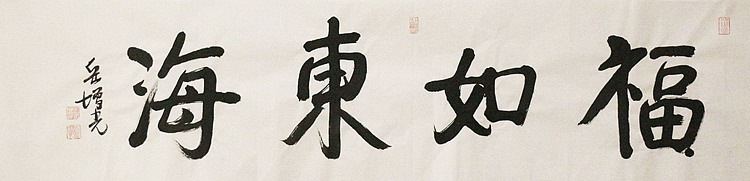 福如東海
岳增光